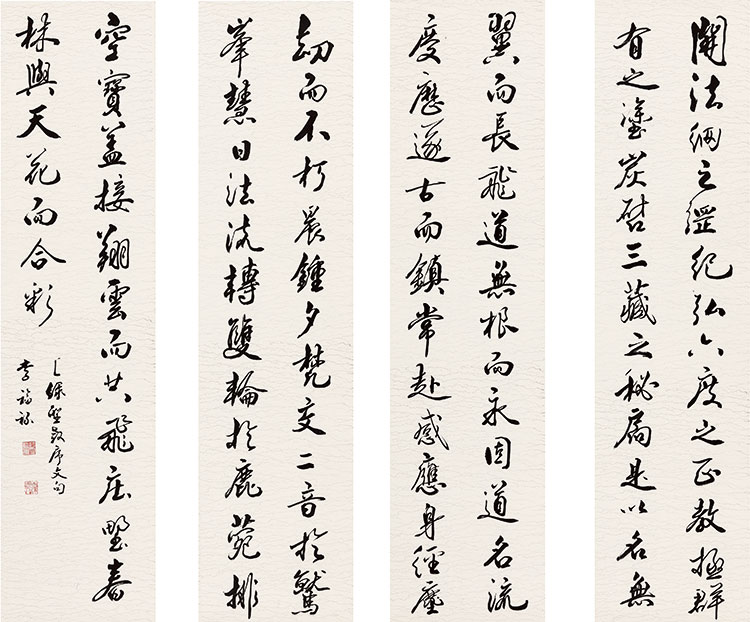 開法網之綱紀弘六度之正教拯群
有之塗炭啓三藏之秘扃是以名無
翼而長飛道無根而永固道名流
慶歷遂古而鎮常赴感應身經塵
劫而不朽晨鍾夕梵交二音於鷲
峯慧日法流轉雙輪於鹿菀排
空寶蓋接翔雲而共飛莊野春
林與天花而合彩
上錄聖教序文句
李福